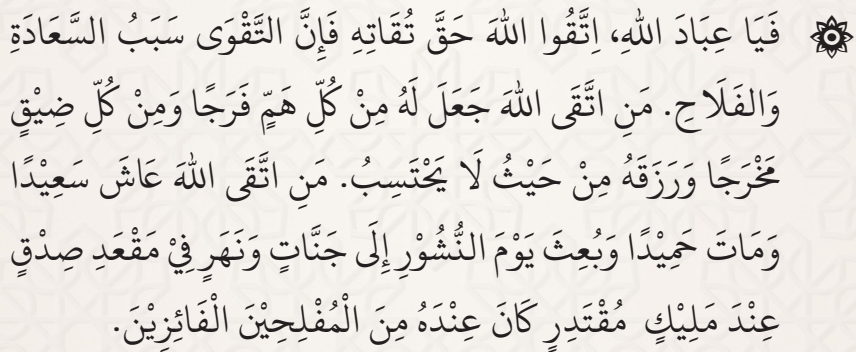 فَيَا عِبَادَ اللهِ، اِتَّقُوا اللهَ حَقَّ تُقَاتِهِ فَإِنَّ التَّقْوَى سَبَبُ السَّعَادَةِ
وَالفَلَاحِ. مَنِ اتَّقَى اللهَ جَعَلَ لَهُ مِنْ كُلِّ هَمٍّ فَرَجًا وَمِنْ كُلِّ ضِيْقٍ
مَخْرَجًا وَرَزَقَهُ مِنْ حَيْثُ لَا يَحْتَسِبُ. مَنِ اتَّقَى اللهَ عَاشَ سَعِيْدًا
وَمَاتَ حَمِيْدًا وَبُعِثَ يَوْمَ النُّشُوْرِ إِلَى جَنَّاتٍ وَنَهَرٍ فِيْ مَقْعَدِ صِدْقٍ
عِنْدَ مَلِيْكٍ مُقْتَدِرٍ كَانَ عِنْدَهُ مِنَ الْمُفْلِحِيْنَ الْفَائِزِيْنَ.